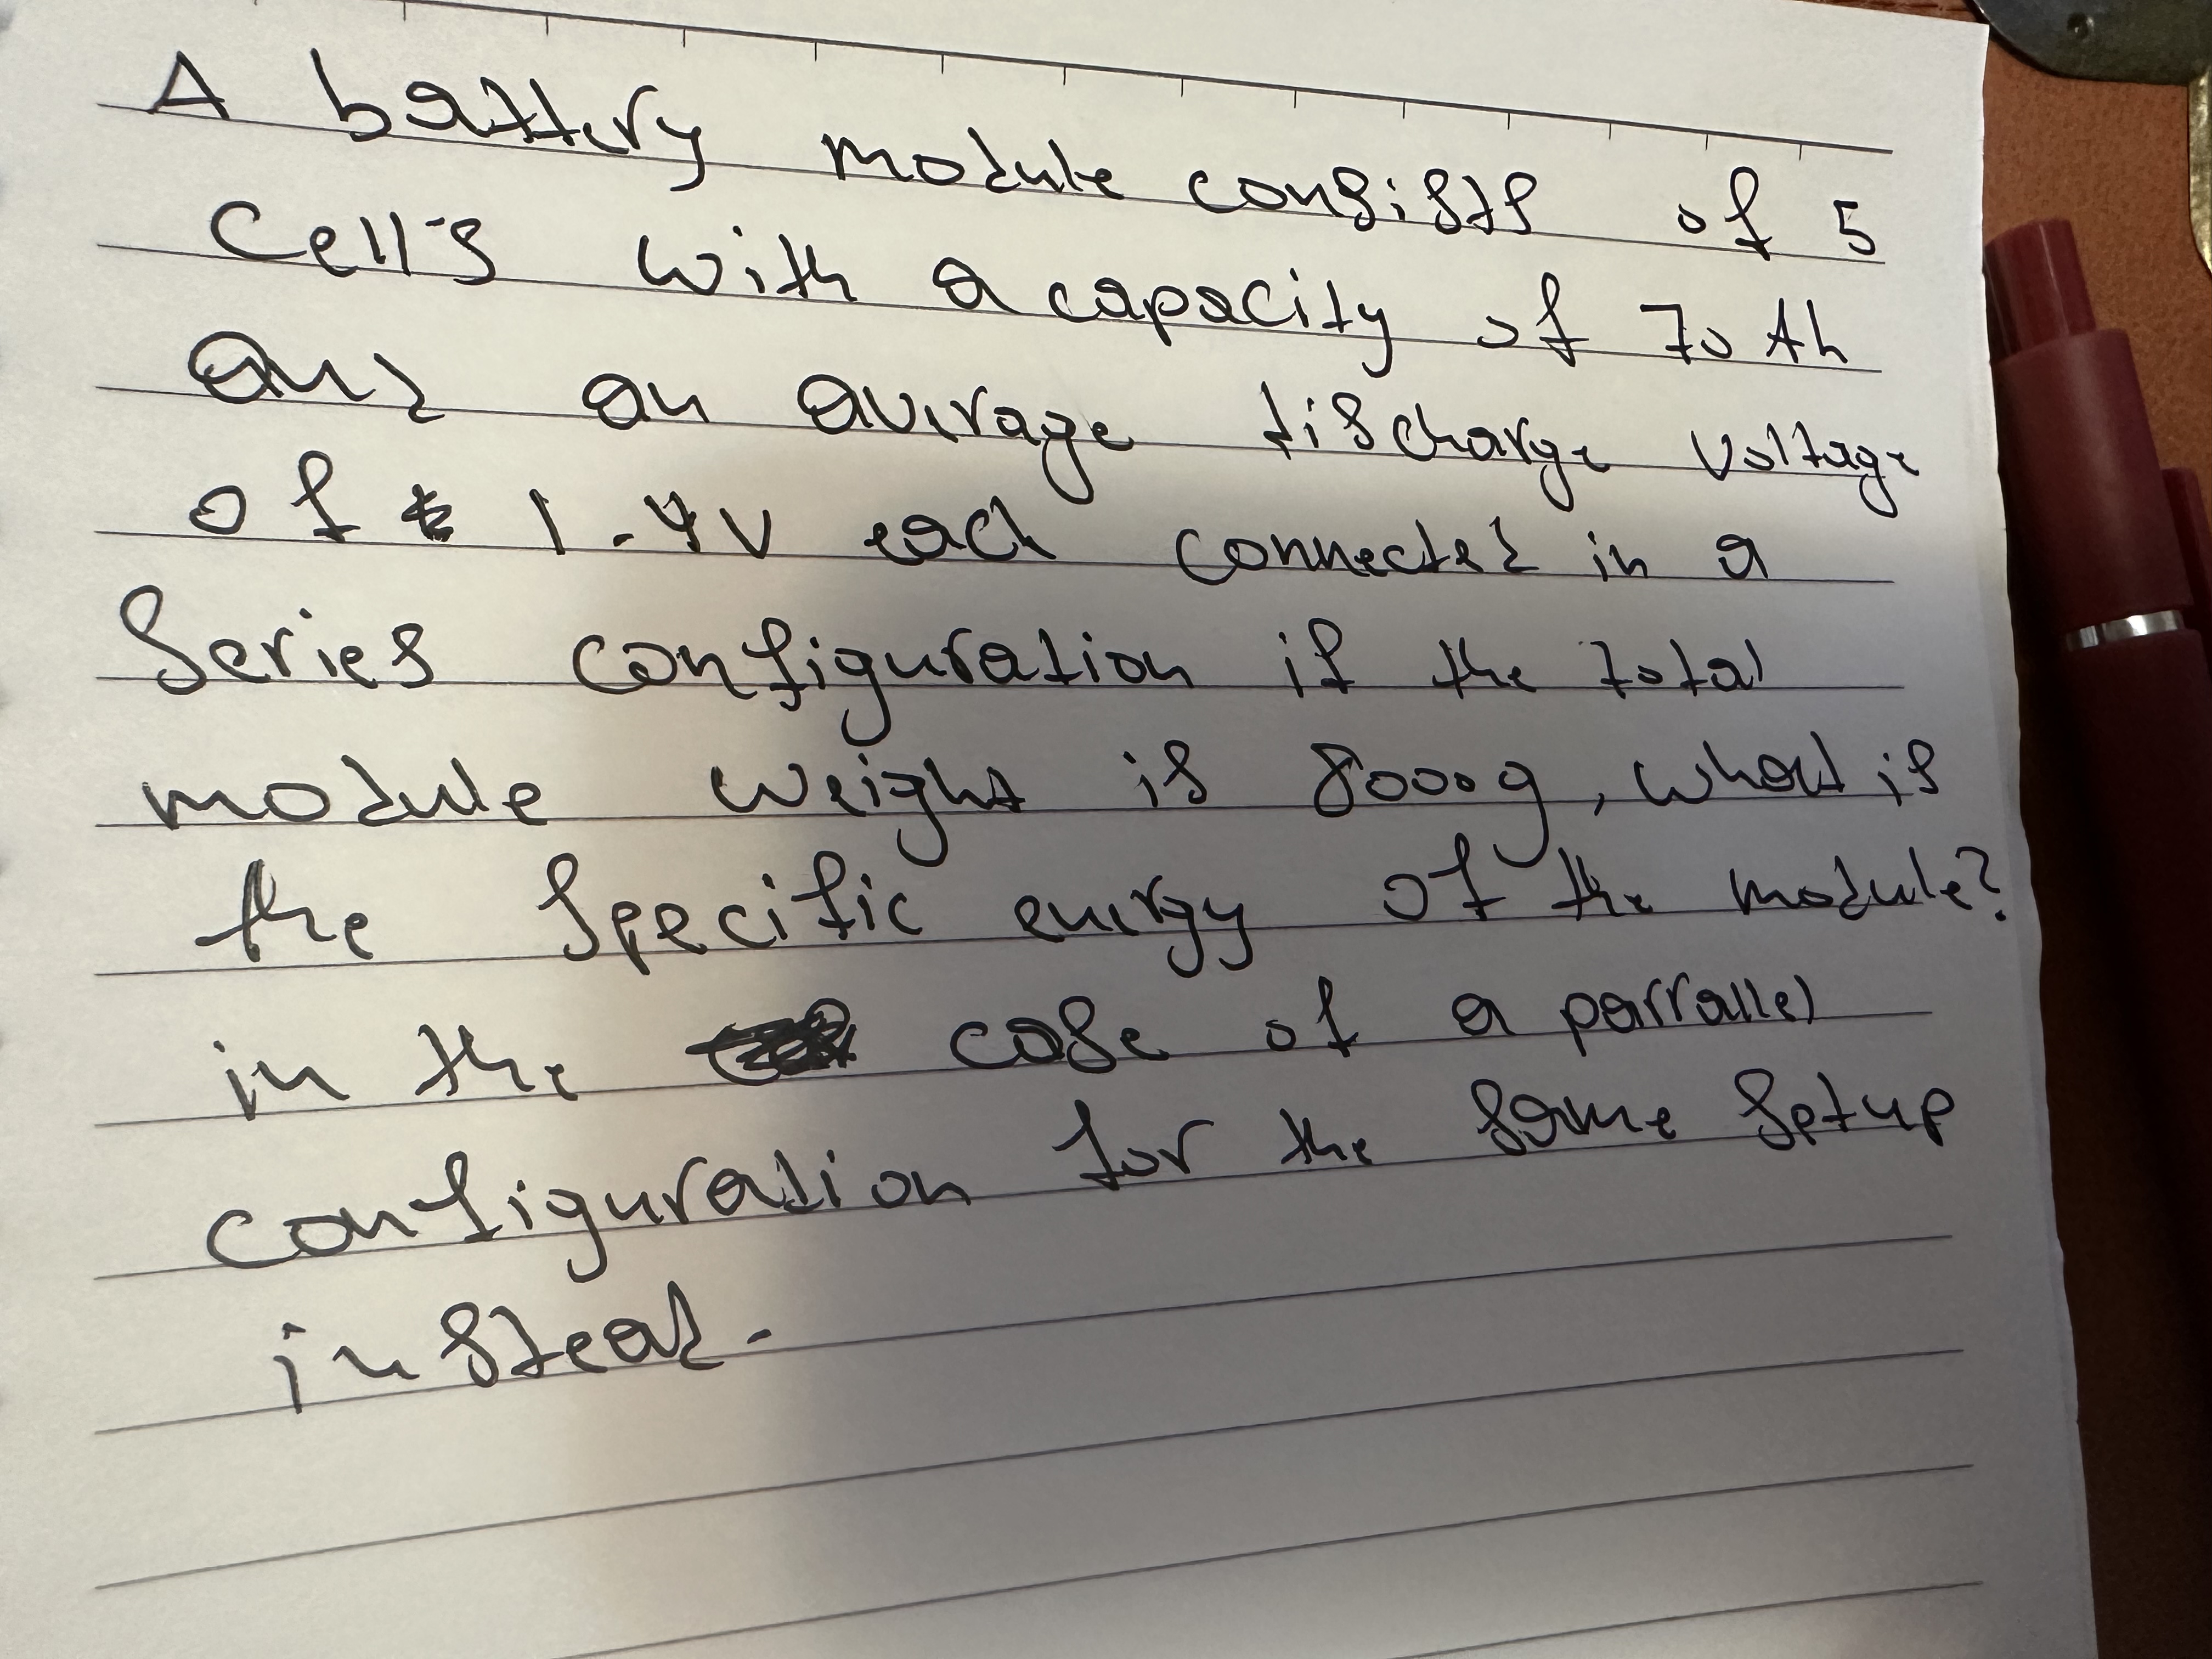 A battery module consists of 5
Cell's with a capacity of 70 Ah
and an average discharge voltage
of 1.4V each connected in a
Series configuration if the total
module weight is 8000g, what is
the specific energy of the module?
in the case of a parrallel
configuration for the same setup
instead.